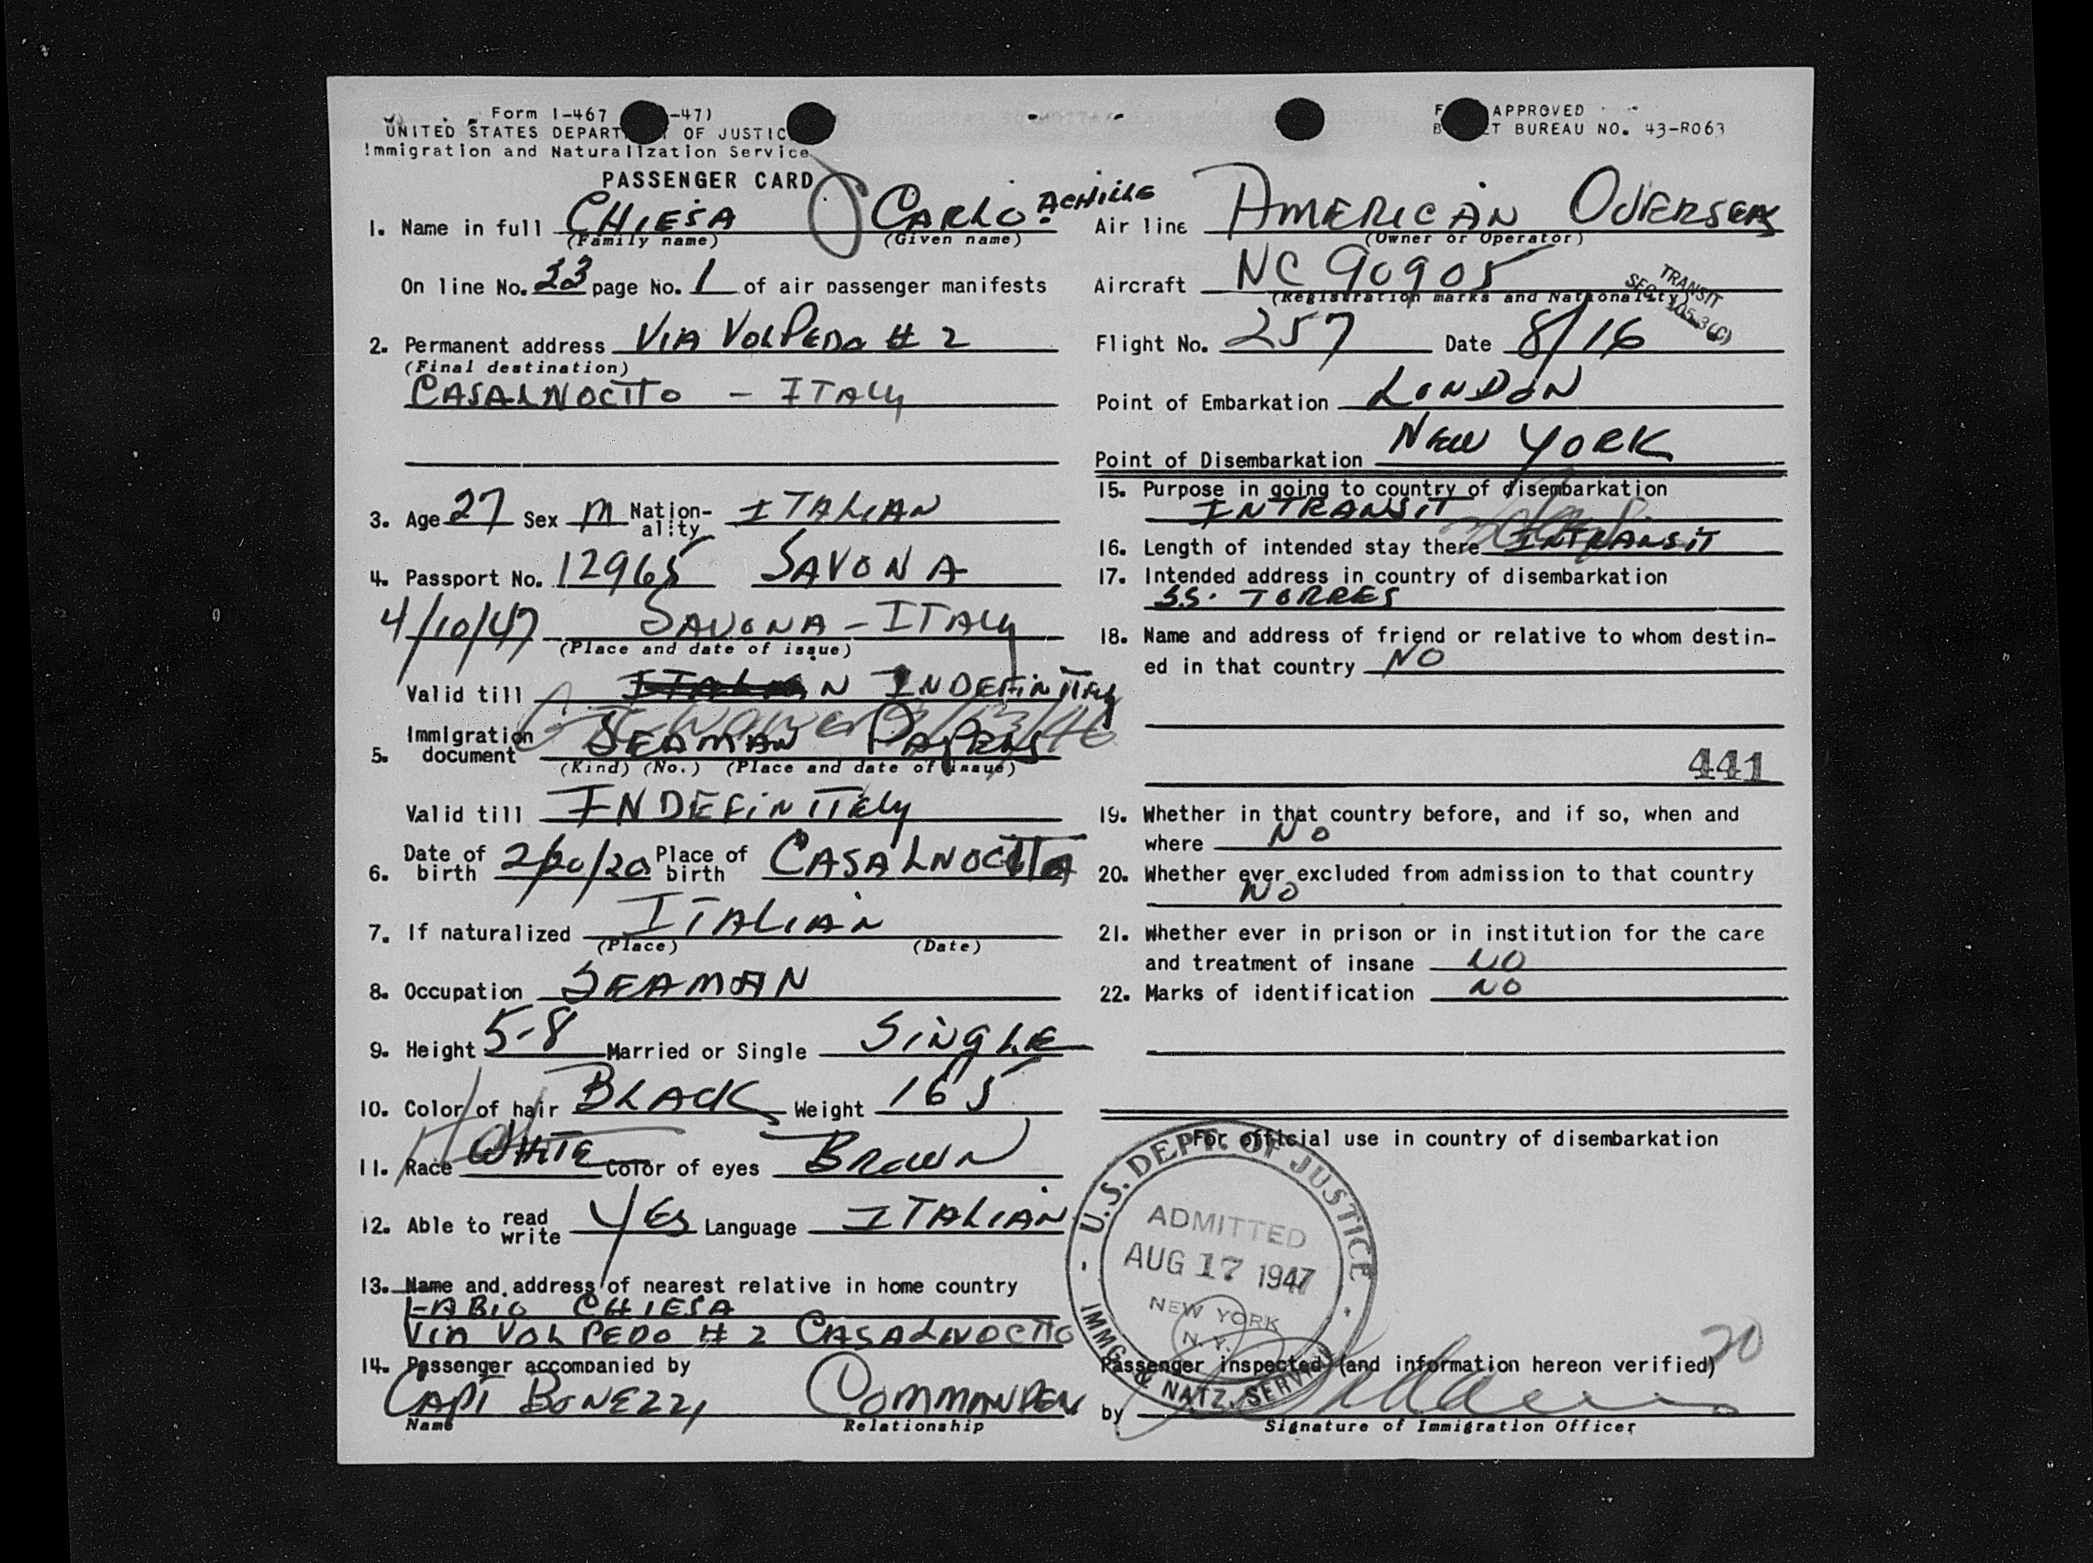 Form I-467 -47)
UNITED STATES DEPART OF JUSTIC
Immigration and Naturalization Service
PASSENGER CARD
1. Name in full CHIESA CARLO ACHILLE
(Family name) (Given name)
On line No. 33 page No. 1 of air passenger manifests
2. Permanent address VIA VOLPEDO # 2
(Final destination)
CASALNOCTTO - ITALY
3. Age 27 Sex M Nation-ality ITALIAN
4. Passport No. 12965 SAVONA
4/10/47 SAVONA - ITALY
(Place and date of issue)
Valid till INDEFINITELY
5. Immigration document SEAMAN PAPERS
(Kind) (No.) (Place and date of issue)
Valid till INDEFINITELY
6. Date of birth 2/20/20 Place of birth CASALNOCTTO
7. If naturalized ITALIAN
(Place) (Date)
8. Occupation SEAMAN
9. Height 5-8 Married or Single SINGLE
10. Color of hair BLACK Weight 165
11. Race WHITE Color of eyes BROWN
12. Able to read write YES Language ITALIAN
13. Name and address of nearest relative in home country
FABIO CHIESA
VIA VOLPEDO # 2 CASALNOCTTO
14. Passenger accompanied by
CAPT BONEZZI COMMANDER
Name Relationship
F APPROVED
B T BUREAU NO. 43-R063
Air line AMERICAN OVERSEAS
(Owner or Operator)
Aircraft NC 90905
(Registration marks and Nationality)
TRANSIT
SEC. 105.3(C)
Flight No. 257 Date 8/16
Point of Embarkation LONDON
Point of Disembarkation NEW YORK
15. Purpose in going to country of disembarkation
INTRANSIT
16. Length of intended stay there INTRANSIT
17. Intended address in country of disembarkation
S.S. TORRES
18. Name and address of friend or relative to whom destin-
ed in that country NO
441
19. Whether in that country before, and if so, when and
where NO
20. Whether ever excluded from admission to that country
NO
21. Whether ever in prison or in institution for the care
and treatment of insane NO
22. Marks of identification NO
For official use in country of disembarkation
U.S. DEPT. OF JUSTICE
ADMITTED
AUG 17 1947
NEW YORK
N.Y.
IMMG. & NATZ. SERVICE
20
Passenger inspected (and information hereon verified)
by
Signature of Immigration Officer